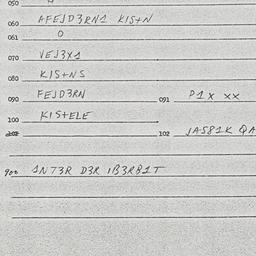 050
060 AFEJD3RN1 KIS+N
061 O
070 VEJ3X1
080 KIS+NS
090 FEJD3RN 091 P1X XX
100 KIS+ELE
102 JA581K QA
900 1NT3R D3R IB3RB1T